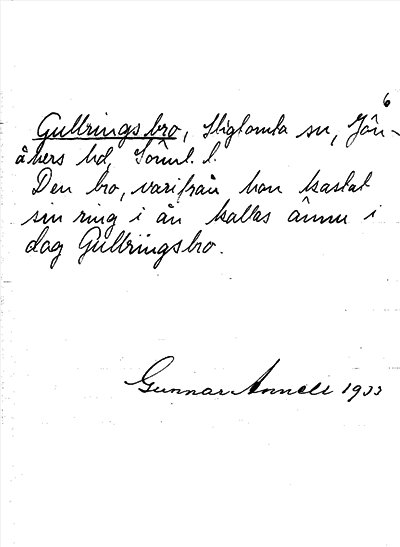 6
Gullringsbro, Stigtomta sn, Jön-
åkers hd, Söml. l.
Den bro, varifrån hon kastat
sin ring i ån kallas ännu i
dag Gullringsbro.
Gunnar Annell 1933